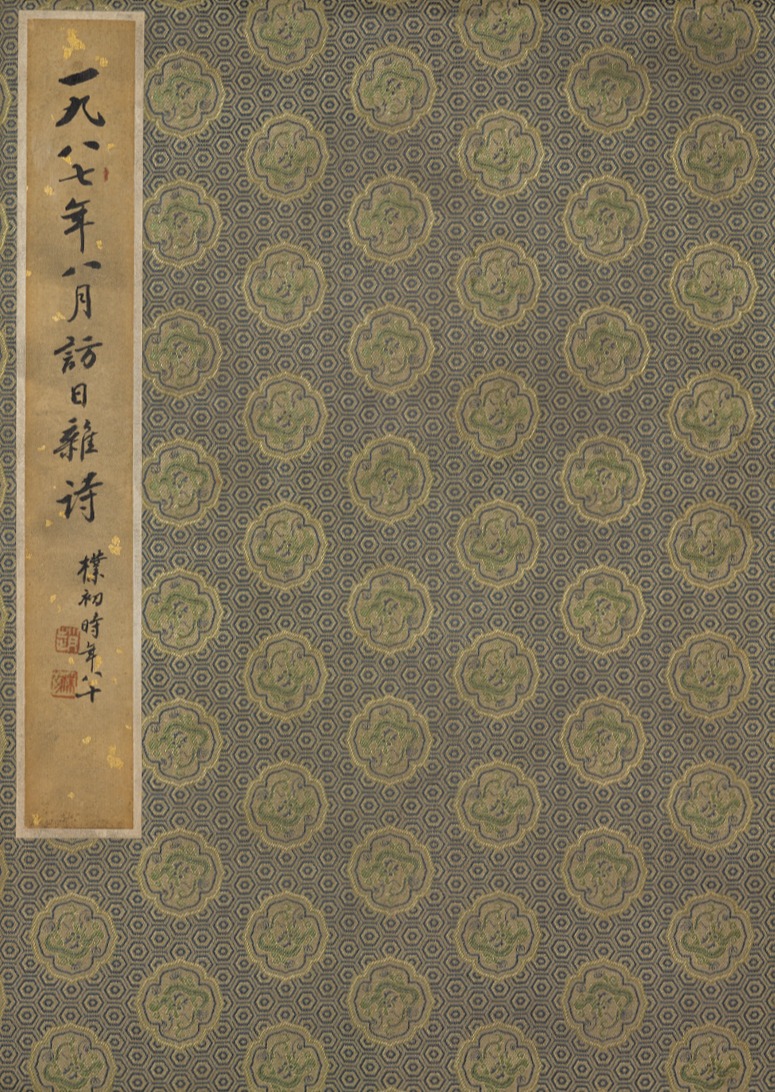 一九八七年八月訪日雜诗
樸初時年八十